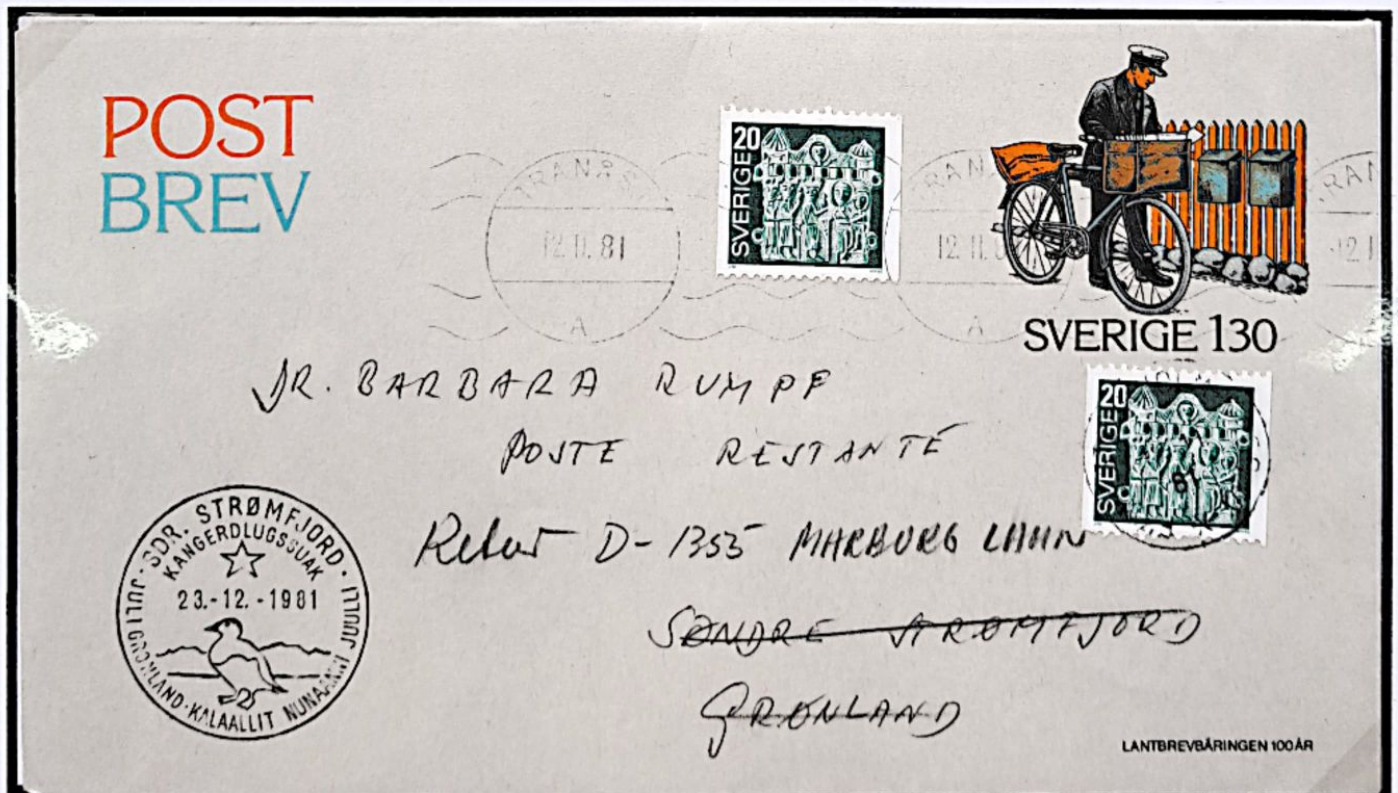 POST
BREV
TRANÅS
12.11.81
A
20
SVERIGE
TRAN
12.11.8
A
RAN
12.1
SVERIGE 130
20
SVERIGE
DR. BARBARA RUMPF
POSTE RESTANTE
Retur D-1355 MARBURG LAHN
SØNDRE STRØMFJORD
GRØNLAND
SDR. STRØMFJORD
KANGERDLUGSSUAK
23.-12.-1981
JUL I GRØNLAND · KALAALLIT NUNAANNI JUULLI
LANTBREVBÄRINGEN 100 ÅR